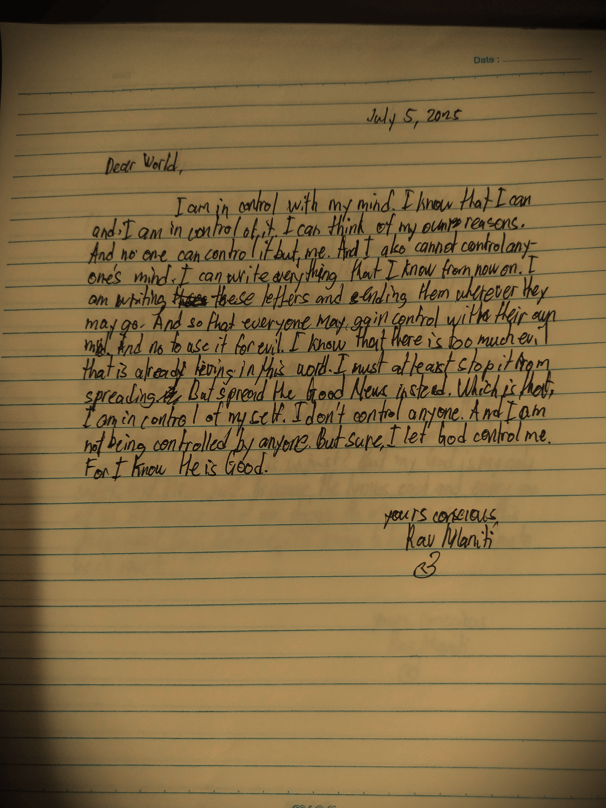 Date :
July 5, 2025
Dear World,
I am in control with my mind. I know that I can
and, I am in control of it. I can think of my own reasons.
And no one can control it but, me. And I also cannot control any-
one's mind. I can write everything that I know from now on. I
am writing these letters and sending them wherever they
may go. And so that everyone may gain control with their own
mind. And no to use it for evil. I know that there is too much evil
that is already living in this word. I must at least stop it from
spreading. But spread the Good News instead. Which is that,
I am in control of my self. I don't control anyone. And I am
not being controlled by anyone. But sure, I let God control me.
For I know He is Good.
yours conscious,
Rav